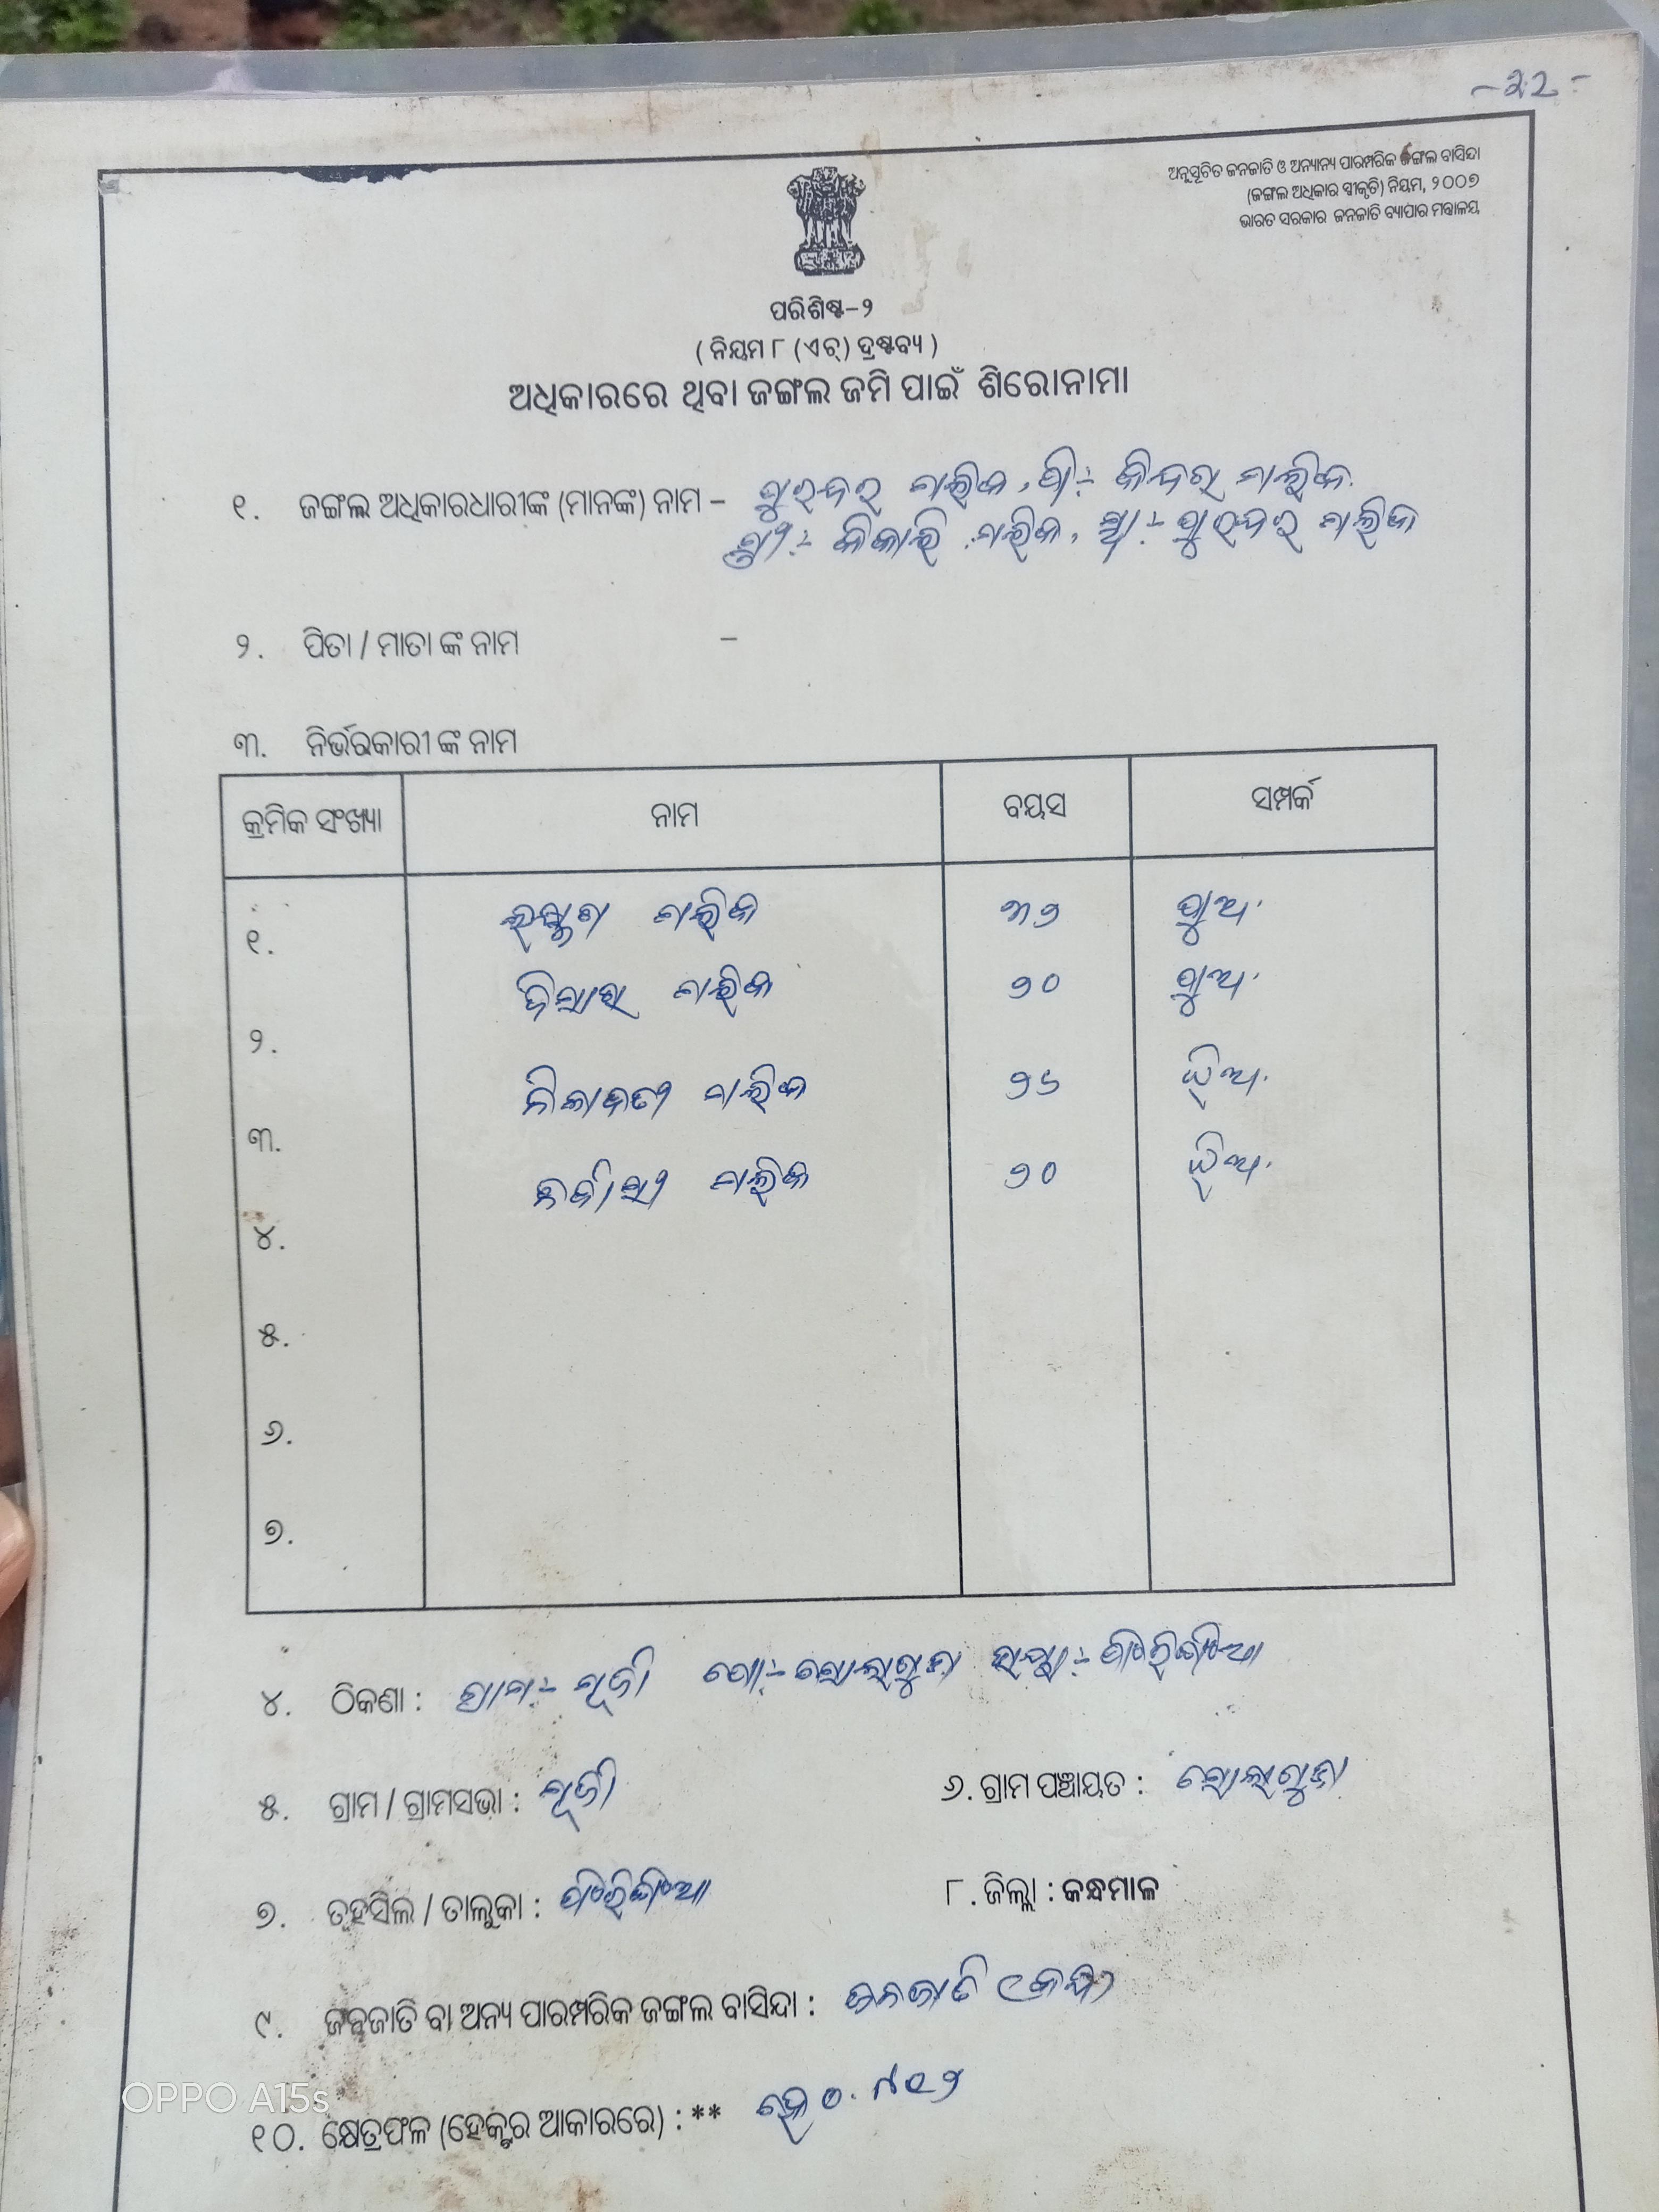 -22-
ଅନୁସୂଚିତ ଜନଜାତି ଓ ଅନ୍ୟାନ୍ୟ ପାରମ୍ପରିକ ଜଙ୍ଗଲ ବାସିନ୍ଦା
(ଜଙ୍ଗଲ ଅଧିକାର ସ୍ୱୀକୃତି) ନିୟମ, ୨୦୦୭
ଭାରତ ସରକାର ଜନଜାତି ବ୍ୟାପାର ମନ୍ତ୍ରାଳୟ
ପରିଶିଷ୍ଟ-୨
( ନିୟମ ୮ (ଏଚ୍) ଦ୍ରଷ୍ଟବ୍ୟ )
ଅଧିକାରରେ ଥିବା ଜଙ୍ଗଲ ଜମି ପାଇଁ ଶିରୋନାମା
୧. ଜଙ୍ଗଲ ଅଧିକାରଧାରୀଙ୍କ (ମାନଙ୍କ) ନାମ - ପୁରନ୍ଦର ମଲିକ, ପି:- ମଲିକ
ସ୍ତ୍ରୀ:- ମଲିକ, ସ୍ୱା:- ପୁରନ୍ଦର ମଲିକ
୨. ପିତା / ମାତା ଙ୍କ ନାମ -
୩. ନିର୍ଭରକାରୀ ଙ୍କ ନାମ
କ୍ରମିକ ସଂଖ୍ୟା ନାମ ବୟସ ସମ୍ପର୍କ
୧. ମଲିକ ୩୨ ପୁଅ
୨. ମଲିକ ୨୦ ପୁଅ
୩. ମଲିକ ୨୬ ଝିଅ
୪. ମଲିକ ୨୦ ଝିଅ
୫.
୬.
୭.
୪. ଠିକଣା : ଗ୍ରାମ:- ପୋ:- ଥାନା:- ଫିରିଙ୍ଗିଆ
୫. ଗ୍ରାମ / ଗ୍ରାମସଭା :
୬. ଗ୍ରାମ ପଞ୍ଚାୟତ :
୭. ତହସିଲ / ତାଲୁକା : ଫିରିଙ୍ଗିଆ
୮. ଜିଲ୍ଲା : କନ୍ଧମାଳ
୯. ଜନଜାତି ବା ଅନ୍ୟ ପାରମ୍ପରିକ ଜଙ୍ଗଲ ବାସିନ୍ଦା : ଜନଜାତି (କନ୍ଧ)
୧୦. କ୍ଷେତ୍ରଫଳ (ହେକ୍ଟର ଆକାରରେ) : ** ହେ ୦.
OPPO A15s